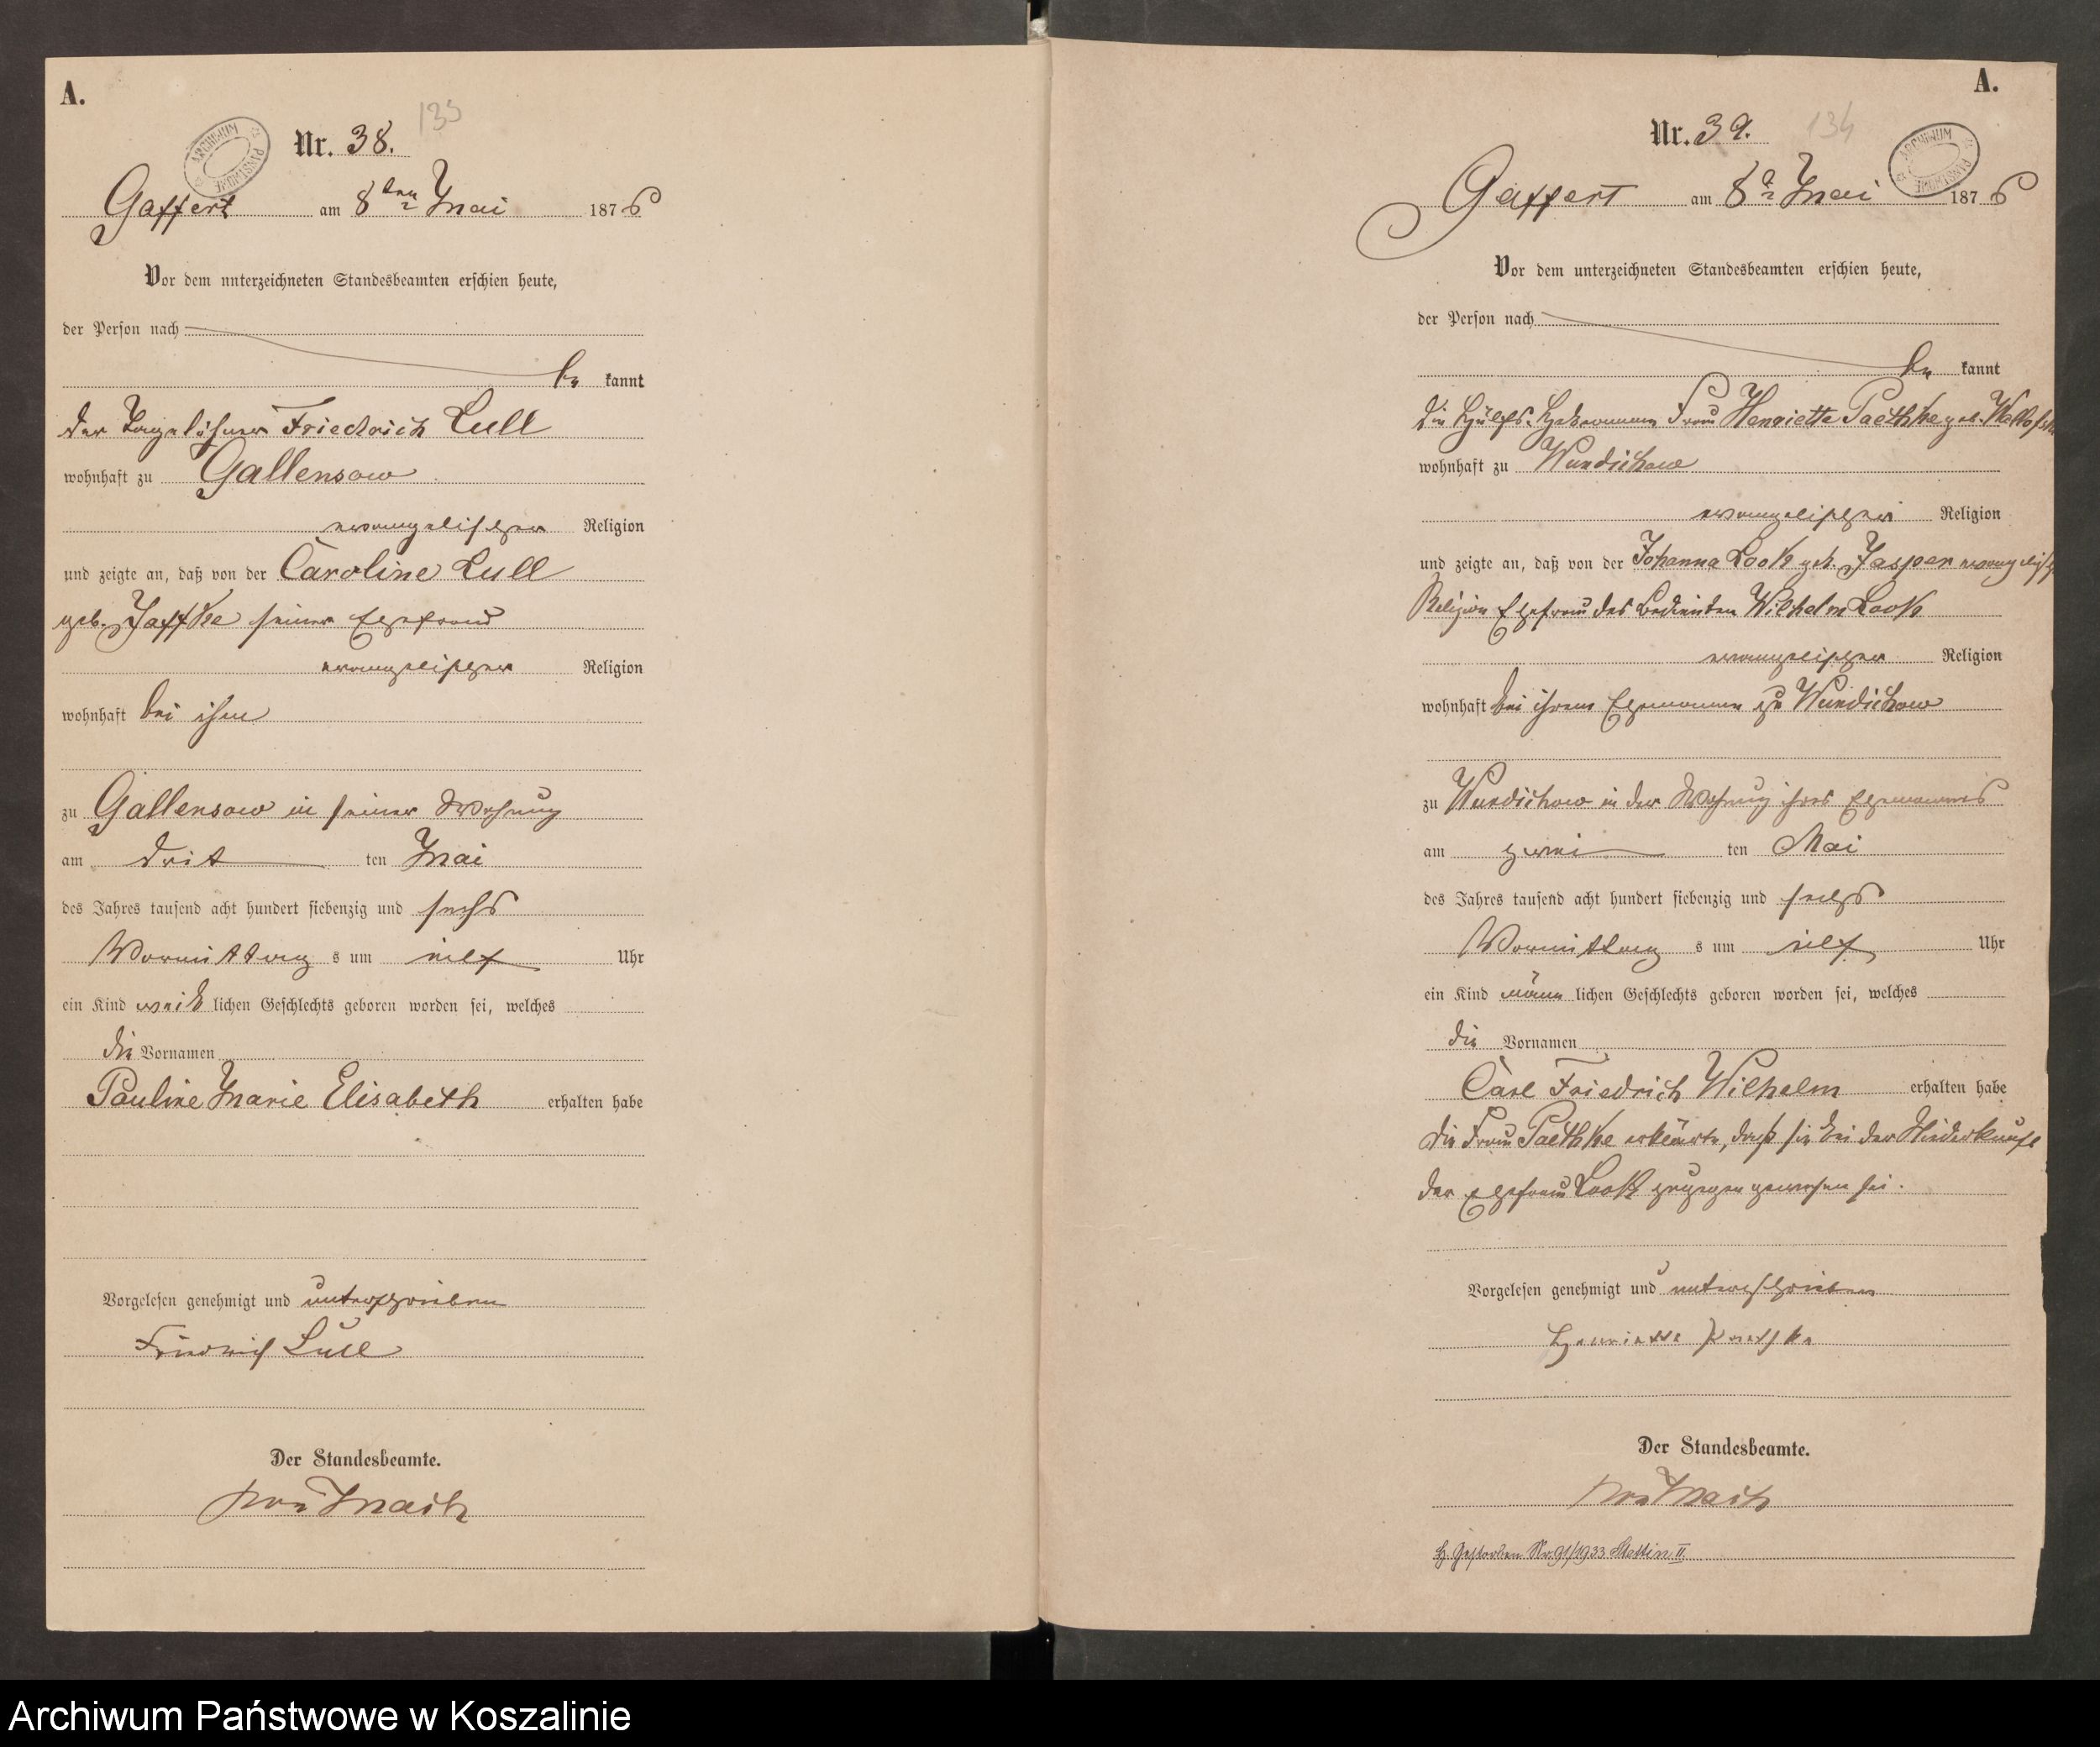 A.
135
Nr. 38.
ARCHIWUM PAŃSTWOWE
Gaffert am 8ten Mai 1876
Vor dem unterzeichneten Standesbeamten erschien heute,
der Person nach
be kannt
der Tagelöhner Friedrich Lüll
wohnhaft zu Gallensow
evangelischer Religion
und zeigte an, daß von der Caroline Lüll
geb. Jaffke seiner Ehefrau
evangelischer Religion
wohnhaft bei ihm
zu Gallensow in seiner Wohnung
am drit ten Mai
des Jahres tausend acht hundert siebenzig und sechs
Vormittag s um elf Uhr
ein Kind weib lichen Geschlechts geboren worden sei, welches
die Vornamen
Pauline Marie Elisabeth erhalten habe
Vorgelesen genehmigt und unterschrieben
Friedrich Lüll
Der Standesbeamte.
A.
134
Nr. 39.
ARCHIWUM PAŃSTWOWE
Gaffert am 8ten Mai 1876
Vor dem unterzeichneten Standesbeamten erschien heute,
der Person nach
be kannt
die Hülfs-Hebamme Frau Henriette Paethke geb.
wohnhaft zu Wundichow
evangelischer Religion
und zeigte an, daß von der Johanna Look geb. Jasper evangelisch
Religion Ehefrau des Bedienten Wilhelm Look
evangelischer Religion
wohnhaft bei ihrem Ehemanne zu Wundichow
zu Wundichow in der Wohnung ihres Ehemannes
am zwei ten Mai
des Jahres tausend acht hundert siebenzig und sechs
Vormittag s um elf Uhr
ein Kind männ lichen Geschlechts geboren worden sei, welches
die Vornamen
Carl Friedrich Wilhelm erhalten habe
die Frau Paethke erklärte, daß sie bei der Niederkunft
der Ehefrau Look zugegen gewesen sei.
Vorgelesen genehmigt und unterschrieben
Henriette Paethke
Der Standesbeamte.
Gestorben Nr. 91/1933 Stettin II
Archiwum Państwowe w Koszalinie